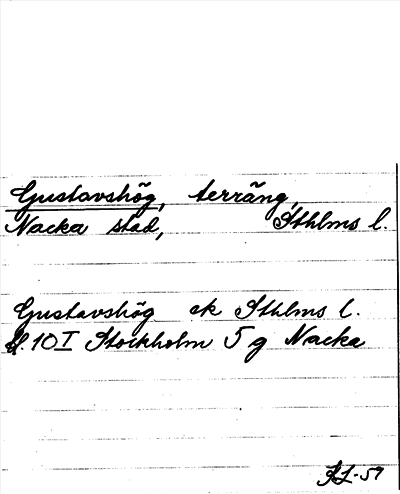 Gustavshög, terräng,
Nacka stad, Sthlms l.
Gustavshög ek Sthlms l.
bl. 10 I Stockholm 5 g Nacka
-59